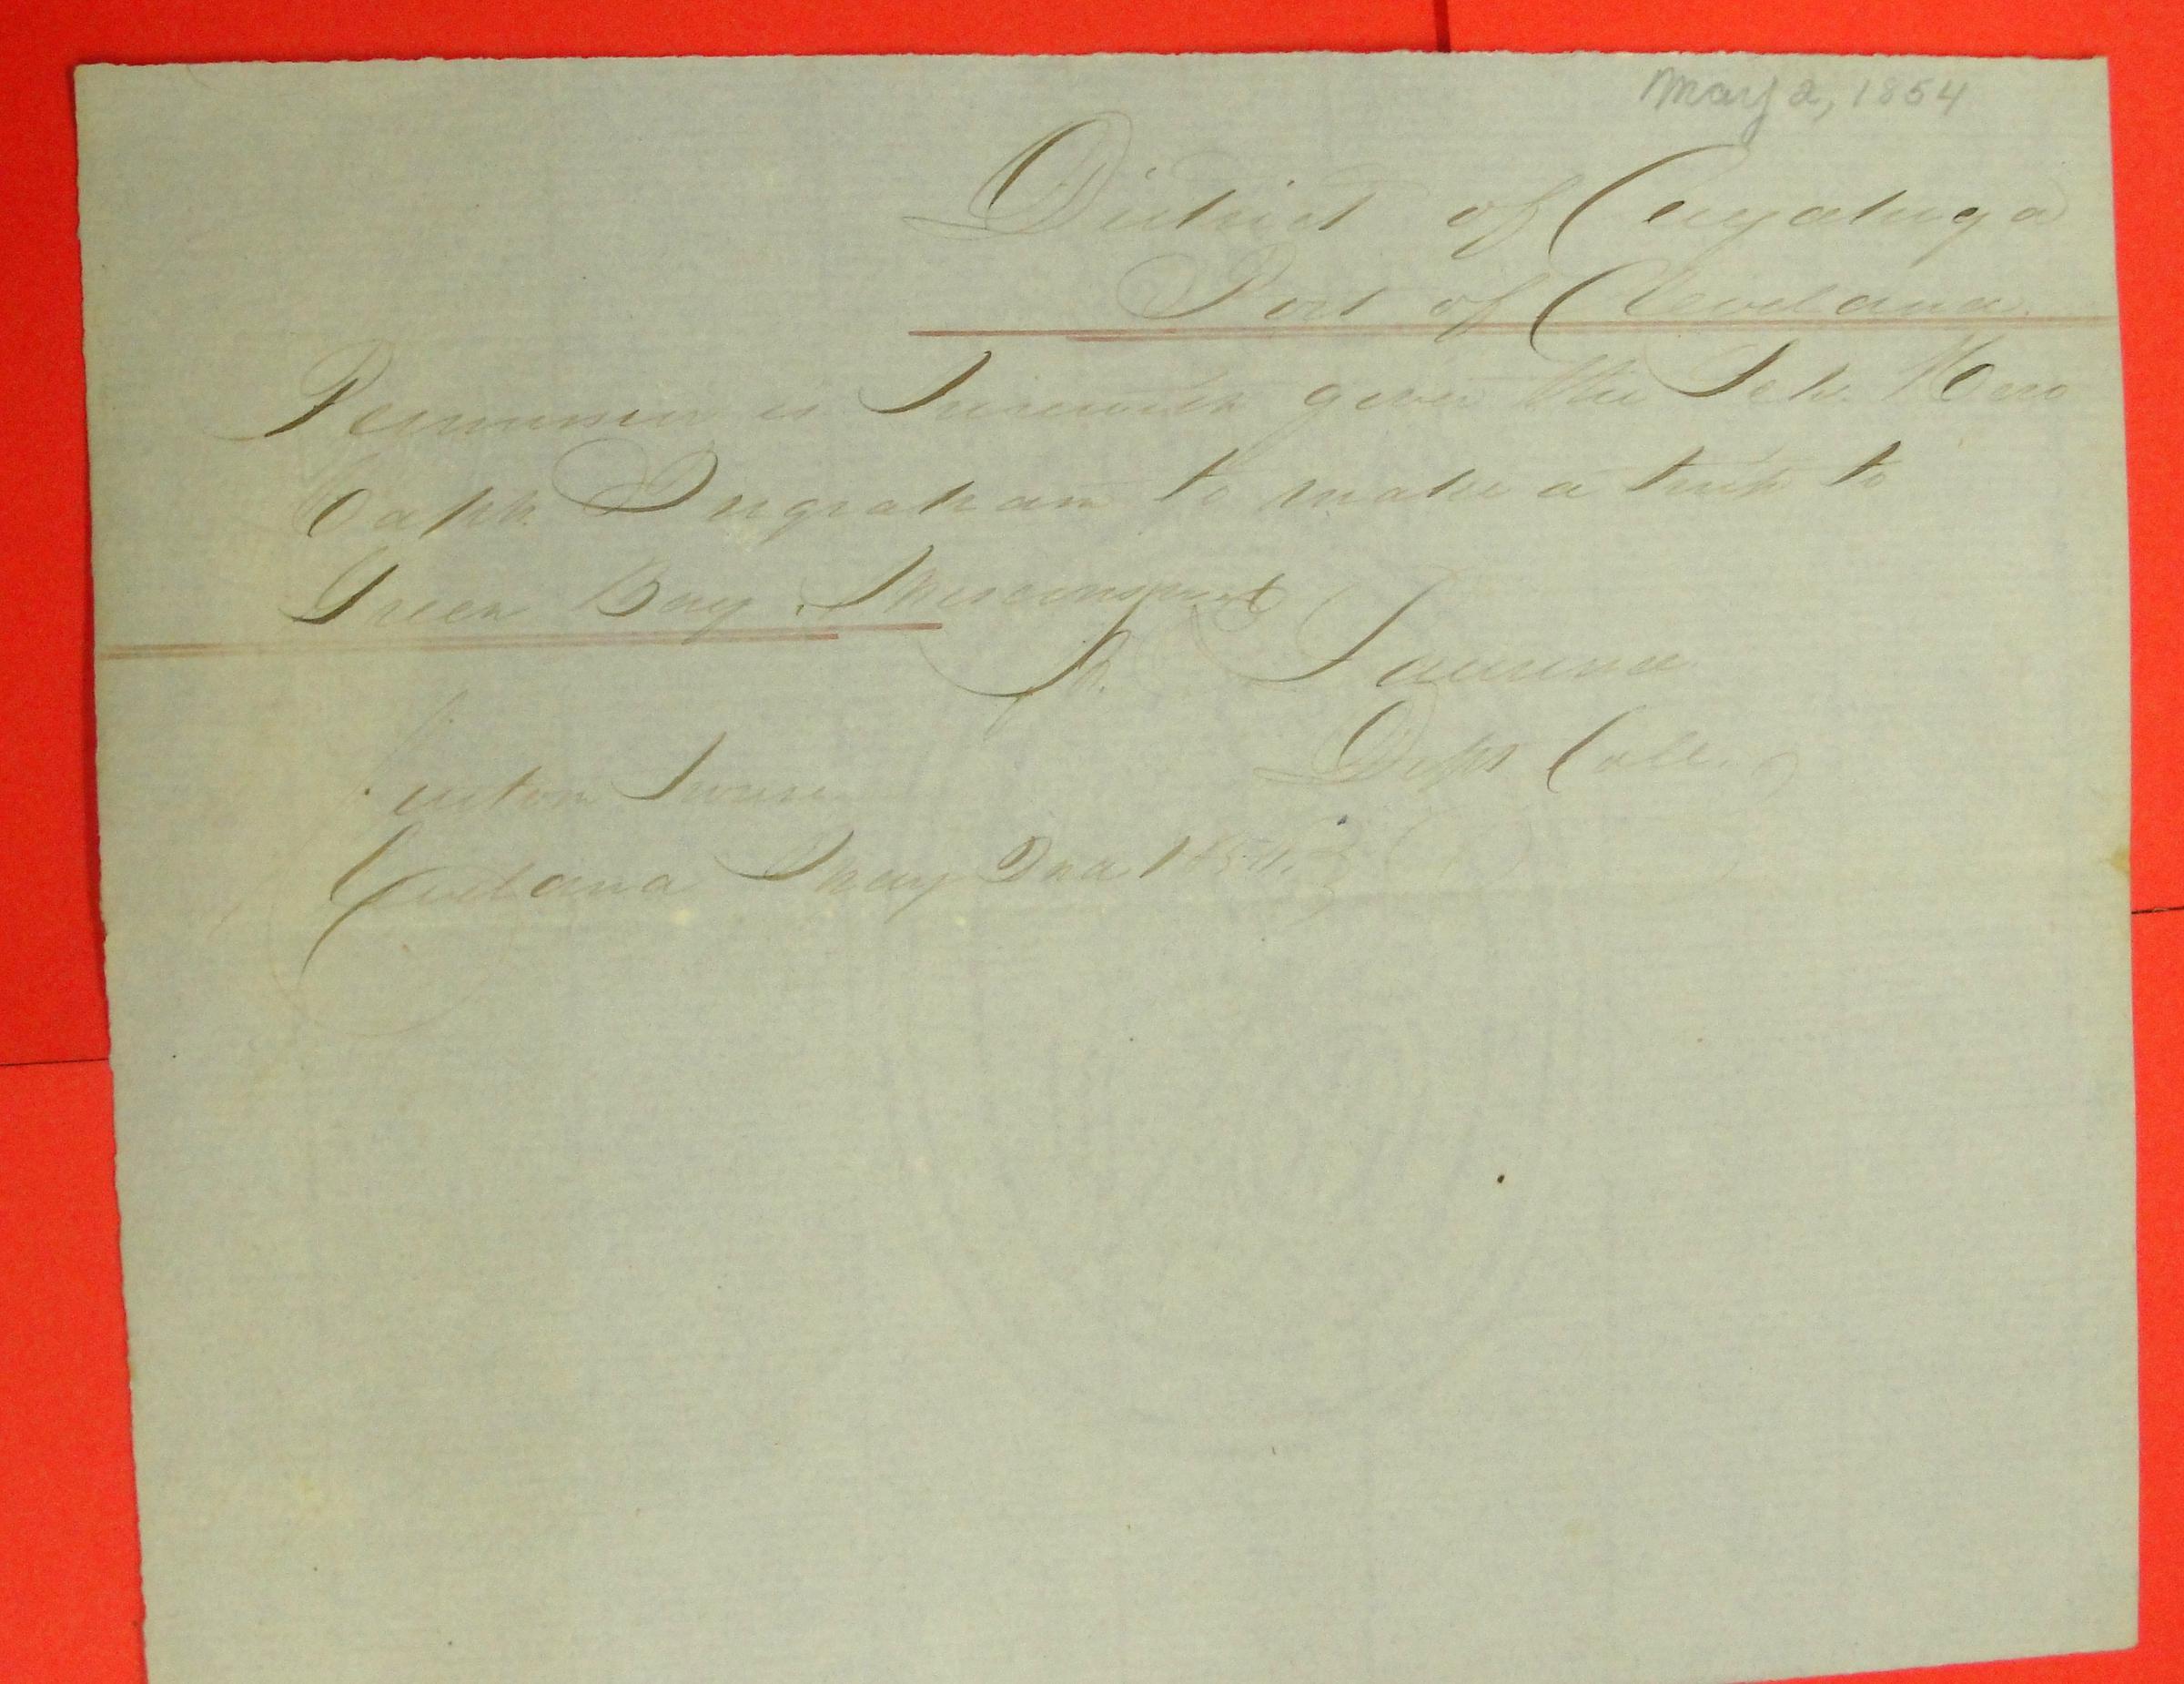 May 2, 1854
District of Cuyahoga
Port of Cleveland
Permission is herewith given the Sch. Hero
Capt. Ingraham to make a trip to
Green Bay Wisconsin
Dept Coll.
Custom House
Cleveland May 2nd 1854